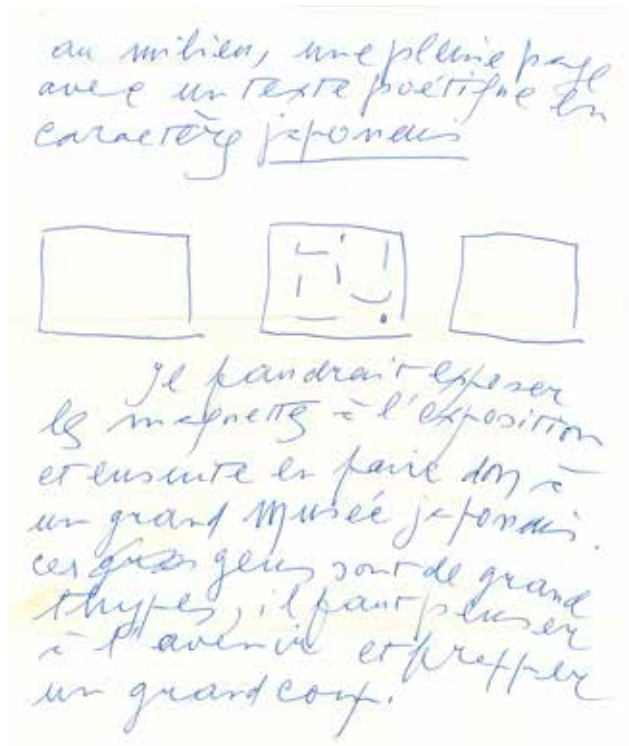 au milieu, une pleine page
avec un texte poétique en
caractères japonais
Il faudrait exposer
les maquettes à l'exposition
et ensuite en faire don à
un grand Musée japonais.
ces gens sont de grand
thypes, il faut penser
à l'avenir et frapper
un grand coup.